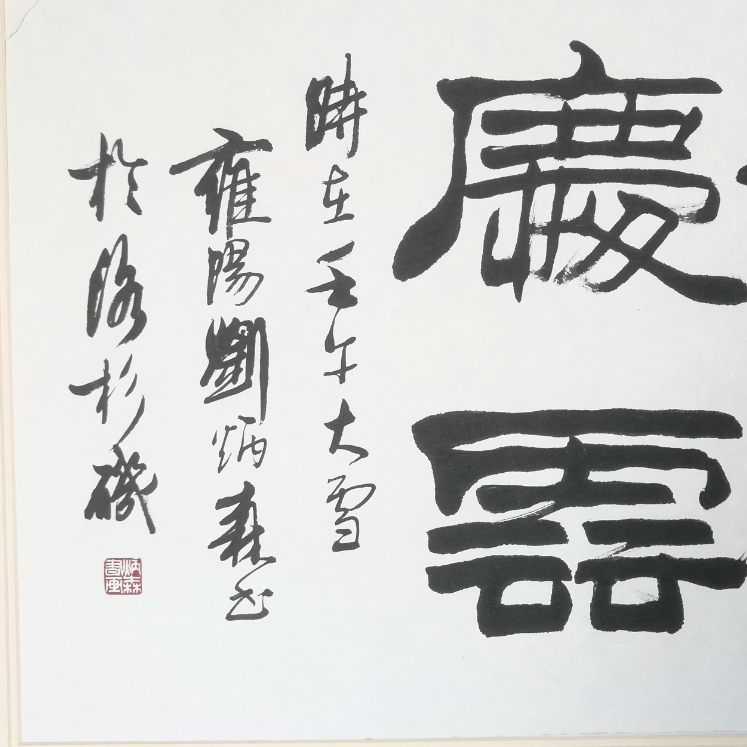 慶雲
時在壬午大雪
雍陽劉炳森書
於洛杉磯
炳森